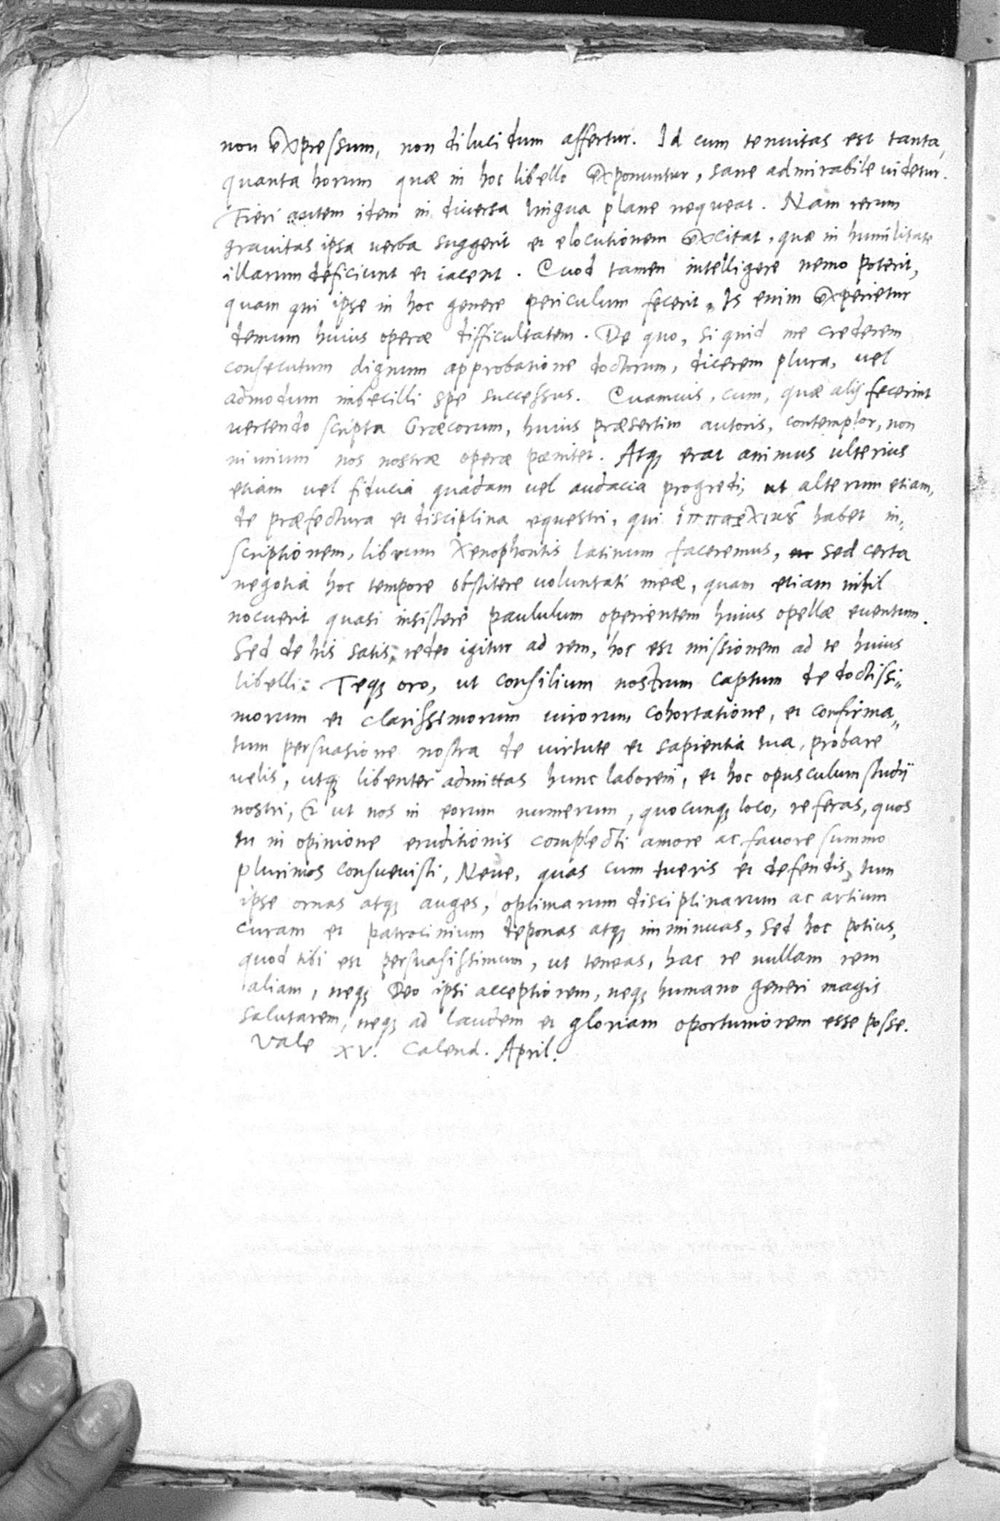 non expressum, non dilucidum affertur. Id cum tenuitas est tanta,
quanta horum quæ in hoc libello exponuntur, sane admirabile videtur.
Fieri autem idem in diversa lingua plane nequeat. Nam rerum
gravitas ipsa verba suggerit et elocutionem excitat, quæ in humilitate
illarum deficiunt et iacent. Quod tamen intelligere nemo poterit,
quam qui ipse in hoc genere periculum fecerit. Is enim experietur
demum huius operæ difficultatem. De quo, si quid me crederem
consecutum dignum approbatione doctorum, dicerem plura, vel
admodum imbecilli spe successus. Quamvis, cum, quæ alij fecerint
vertendo scripta Græcorum, huius præsertim autoris, contemplor, non
nimium nos nostræ operæ pænitet. Atq; erat animus ulterius
etiam vel fiducia quadam vel audacia progredi, ut alterum etiam,
de præfectura et disciplina equestri, qui habet in,
scriptionem, librum Xenophontis latinum faceremus, sed certa
negotia hoc tempore obstitere voluntati meæ, quam etiam nihil
nocuerit quasi insistere paululum operientem huius opellæ eventum.
Sed de his satis, redeo igitur ad rem, hoc est missionem ad te huius
libelli: Teq; oro, ut consilium nostrum captum de doctissi„
morum et clarissimorum virorum cohortatione, et confirma„
tum persuasione nostra de virtute et sapientia tua, probare
velis, utq; libenter admittas hunc laborem, et hoc opusculum studij
nostri, & ut nos in eorum numerum, quocunq; loco, referas, quos
tu in opinione eruditionis complecti amore ac favore summo
plurimos consuevisti, Neve, quas cum tueris et defendis, tum
ipse ornas atq; auges, optimarum disciplinarum ac artium
curam et patrocinium deponas atq; imminuas, sed hoc potius,
quod tibi est persuasissimum, ut teneas, hac re nullam rem
aliam, neq; Deo ipsi acceptiorem, neq; humano generi magis
salutarem, neq; ad laudem et gloriam oportuniorem esse posse.
Vale XV. Calend. April.